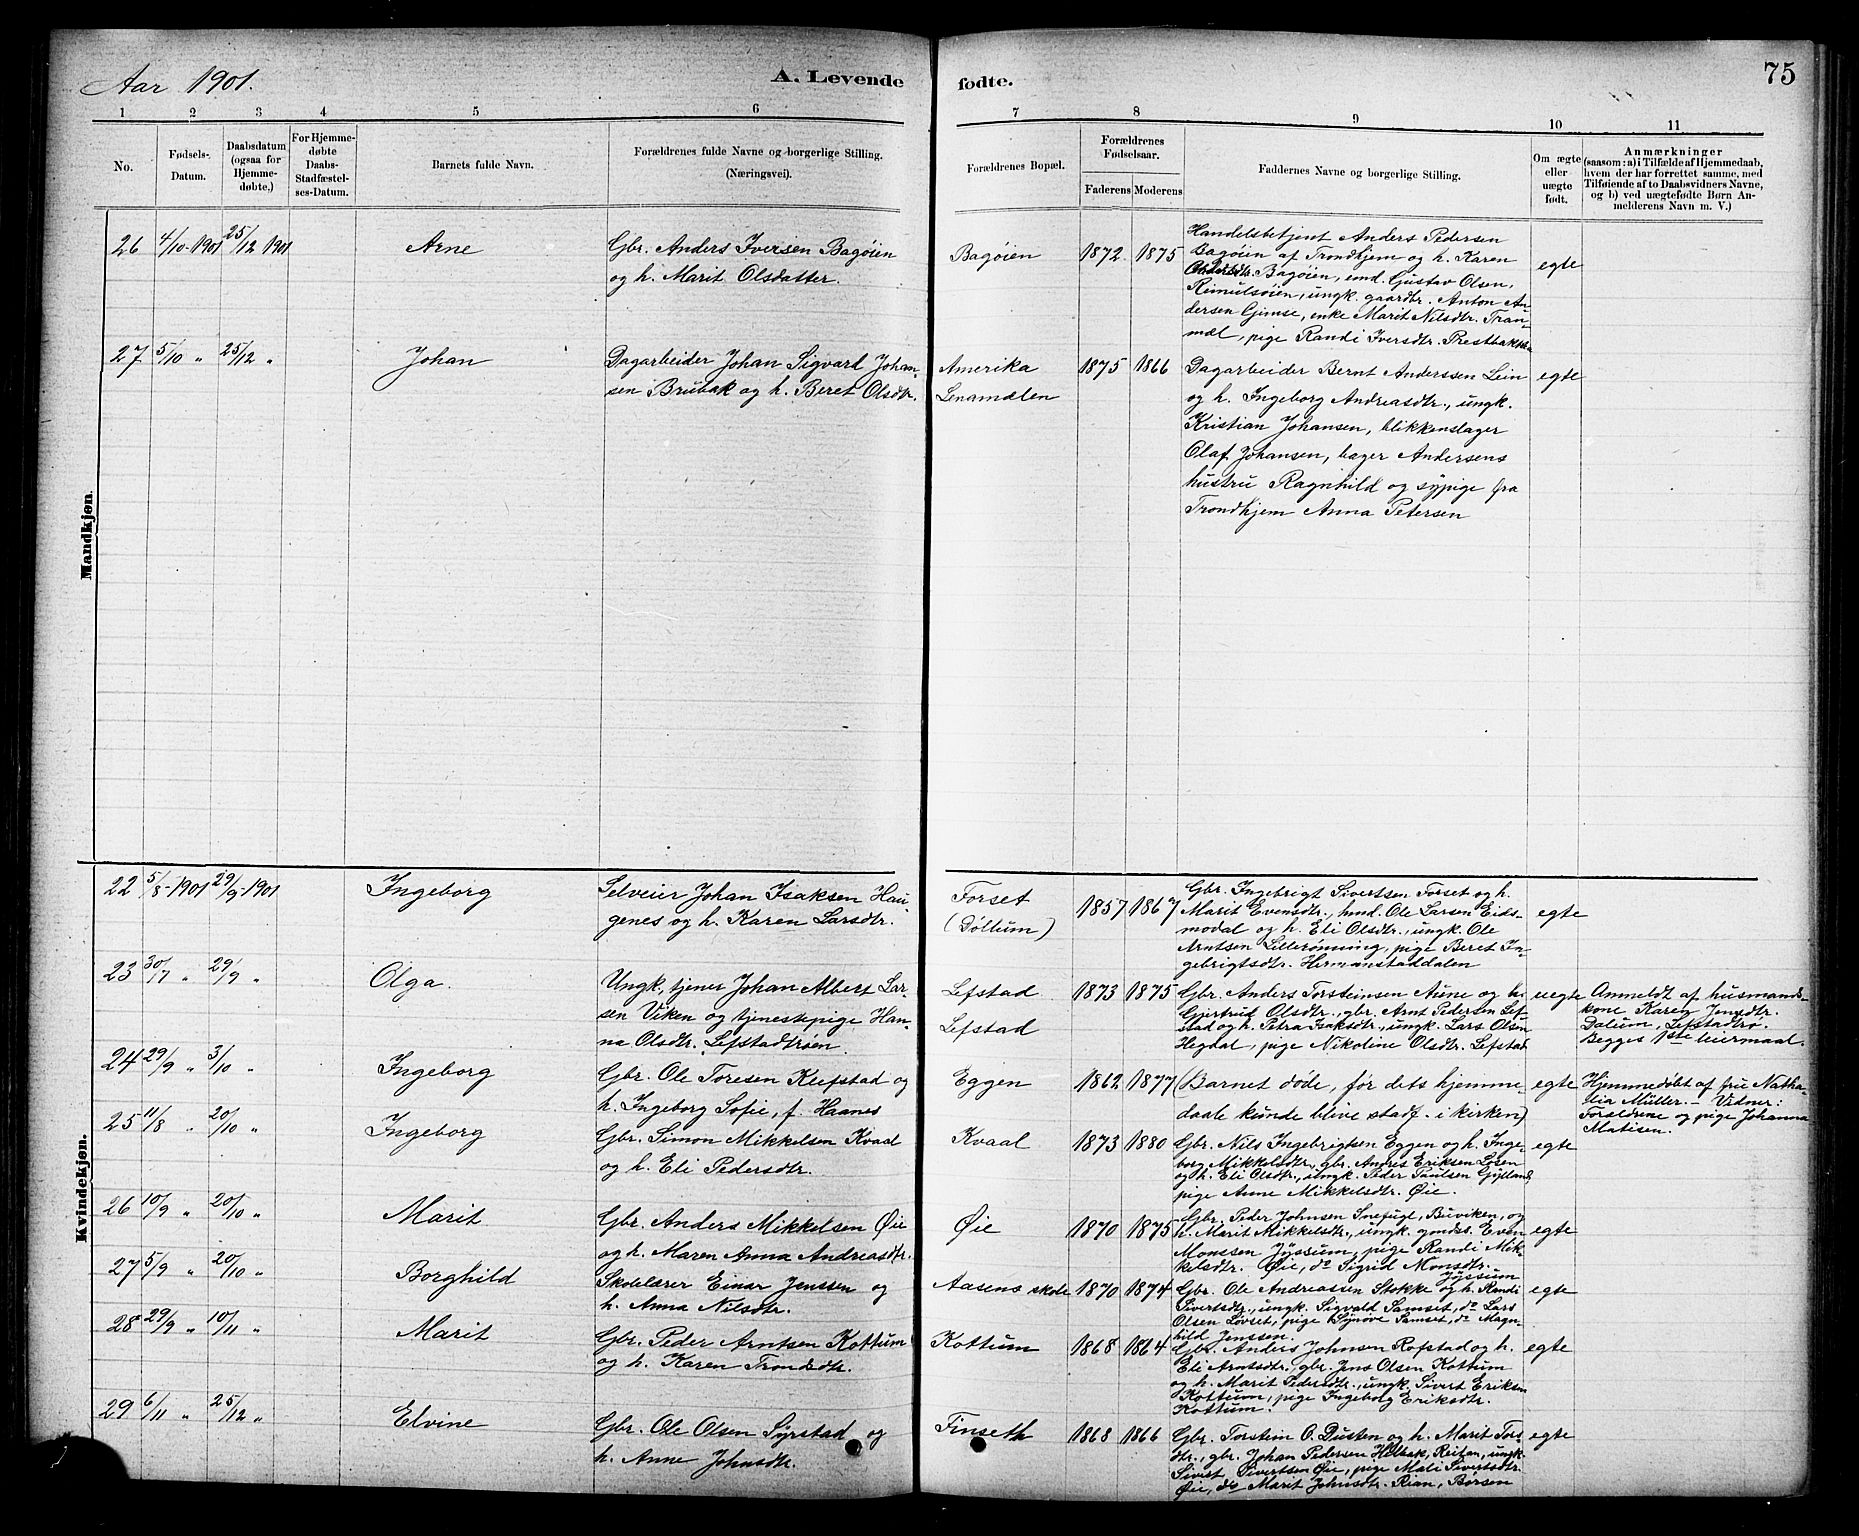 Aar 1901.
A. Levende fødte.
75
1 2 3 4 5 6 7 8 9 10 11
No.
Fødsels-Datum.
Daabsdatum (ogsaa for Hjemmedøbte.)
For Hjemmedøbte Daabs-Stadfæstelses-Datum.
Barnets fulde Navn.
Forældrenes fulde Navne og borgerlige Stilling. (Næringsvei).
Forældrenes Bopæl.
Forældrenes Fødselsaar.
Faderens Moderens
Faddernes Navne og borgerlige Stilling.
Om ægte eller uægte født.
Anmærkninger
(saasom: a) i Tilfælde af Hjemmedaab,
hvem der har forrettet samme, med
Tilføiende af to Daabsvidners Navne,
og b) ved uægtefødte Børn Anmelderens Navn m. V.)
Mandkjøn.
26 4/10-1901 25/12 1901 Arne
Gbr. Anders Iversen Bagøien
og h. Marit Olsdatter.
Bagøien 1872. 1875
Handelsbetjent Anders Pedersen
Bagøien af Trondhjem og h. Karen
Andersdtr. Bagøien, emd. Gustav Olsen,
Reimulsøien, ungk. gaardbr. Anton An-
dersen Gimse, enke Marit Nilsdtr. Tran-
mæl, pige Randi Iversdtr. Prestbak
egte
27 5/10 " 25/12 " Johan
Dagarbeider Johan Sigvard Johan-
sen Brubak og h. Beret Olsdtr.
Amerika
Lenamælen
1875 1866
Dagarbeider Bernt Anderssen Lein
og h. Ingeborg Andreasdtr., ungk.
Kristian Johansen, blikkenslager
Olaf Johansen, bager Andersens
hustru Ragnhild og sypige fra
Trondhjem Anna Petersen
egte
Kvindekjøn.
22 5/8-1901 29/9-1901 Ingeborg
Selveier Johan Isaksen Hau-
genes og h. Karen Larsdtr.
Forset
(Døltum)
1857 1867
Gbr. Ingebrigt Sivertsen Forset og h.
Marit Evensdtr., hmd. Ole Larsen Eids-
modal og h. Eli Olsdtr., ungk. Ole
Arntsen Lillerønning, pige Beret In-
gebrigtsdtr. Hermanstaddalen
egte
23 30/7 " 29/9 " Olga.
Ungk., tjener Johan Albert Lar-
sen Viken og tjenestepige Han-
na Olsdtr. Lefstadtrøen.
Lefstad
Lefstad
1873 1875
Gbr. Anders Torsteinsen Aune og h.
Gjertrud Olsdtr., gbr. Arnt Pedersen Lef-
stad og h. Petra Isaksdtr., ungk. Lars Olsen
Hegdal, pige Nikoline Olsdtr. Lefstad
uegte
Anmeldt af husmands-
kone Karen Jensdtr.
Dalum, Lefstadtrø.
Begges 1ste leiermaal.
24 29/9 " 3/10 " Ingeborg
Gbr. Ole Toresen Klefstad og
h. Ingeborg Sofie, f. Haanes
Eggen 1862 1877
(Barnet døde, før dets hjemme-
daab kunde blive stadf. i kirken)
egte
Hjemmedøbt af fru Natha-
lia Müller. – Vidner:
Forældrene og pige Johanna
Matisen.
25 11/8 " 20/10 " Ingeborg
Gbr. Simon Mikkelsen Kvaal
og h. Eli Pedersdtr.
Kvaal 1873 1880
Gbr. Nils Ingebrigtsen Eggen og h. Inge-
borg Mikkelsdtr., gbr. Andres Eriksen Løsen
og h. Eli Olsdtr., ungk. Peder Paulsen Gylland,
pige Anne Mikkelsdtr. Øie.
egte
26 10/9 " 20/10 " Marit
Gbr. Anders Mikkelsen Øie
og h. Maren Anna Andreasdtr.
Øie 1870 1875
Gbr. Peder Johnsen Snefugl, Buviken, og
h. Marit Mikkelsdtr., ungk. gmds. Even
Monssen Jyssum, pige Randi Mik-
kelsdtr. Øie, do Sigrid Monsdtr.
Jyssum
egte
27 5/9 " 20/10 " Borghild
Skolelærer Einar Jenssen og
h. Anna Nilsdtr.
Aasens skole 1870 1874
Gbr. Ole Andreassen Stokke og h. Randi
Sivertsdtr., ungk. Sigvald Samset, do Lars
Olsen Løvset, pige Synøve Samset, do Magn-
hild Jenssen.
egte
28 29/9 " 10/11 " Marit
Gbr. Peder Arntsen Kottum
og h. Karen Trondsdtr.
Kottum 1868 1864
Gbr. Anders Johnsen Rofstad og h.
Eli Arntsdtr., gbr. Jens Olsen Kottum
og h. Marit Pedersdtr., ungk. Sivert Eriksen
Kottum, pige Ingeborg Eriksdtr.
Kottum.
egte
29 6/11 " 25/12 " Elvine
Gbr. Ole Olsen Syrstad og
h. Anne Johnsdtr.
Finseth 1868 1866
Gbr. Torstein O. Dusten og h. Marit Tors-
dtr., gbr. Johan Pedersen Hilbak, Reitan, ungk.
Sivert Sivertsen Øie, pige Mali Sivertsdtr.
Øie, do Marit Johnsdtr. Rian, Børsen
egte